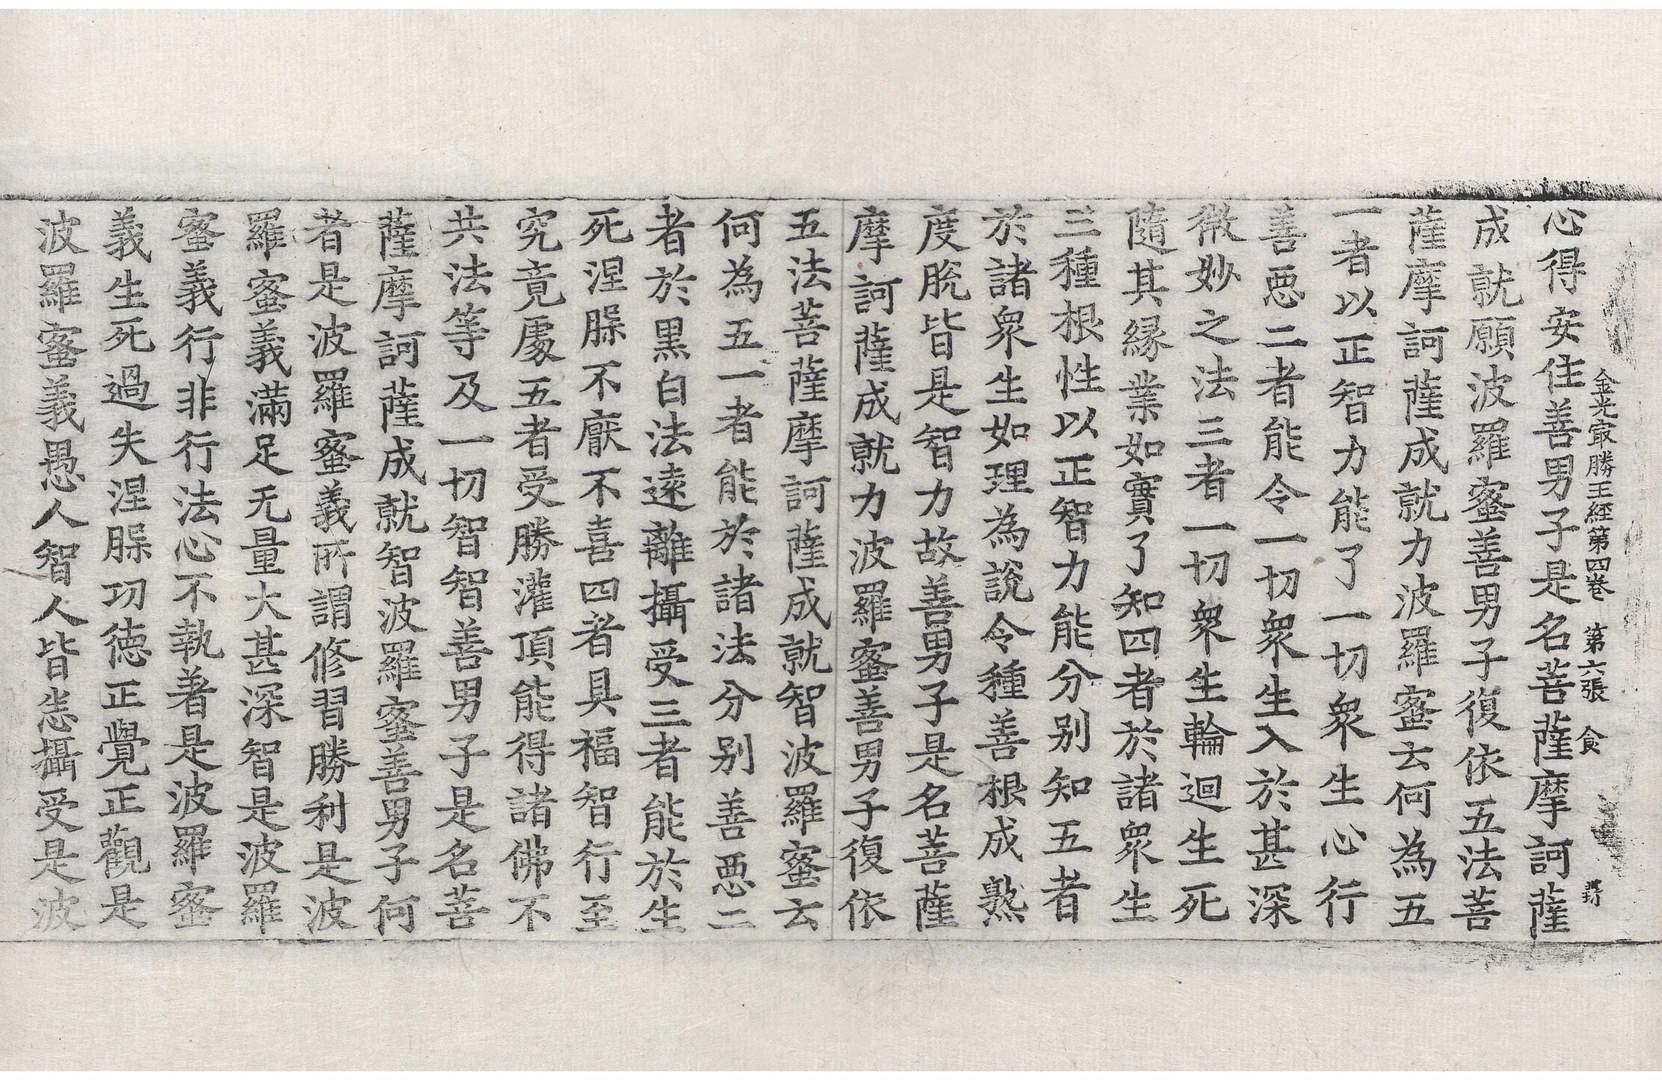 金光㝡勝王經第四巻　第六張　食
心得安住善男子是名菩薩摩訶薩
成就願波羅蜜善男子復依五法菩
薩摩訶薩成就力波羅蜜云何為五
一者以正智力能了一切衆生心行
善惡二者能令一切衆生入於甚深
微妙之法三者一切衆生輪迴生死
隨其縁業如實了知四者於諸衆生
三種根性以正智力能分别知五者
於諸衆生如理為說令種善根成熟
度脫皆是智力故善男子是名菩薩
摩訶薩成就力波羅蜜善男子復依
五法菩薩摩訶薩成就智波羅蜜云
何為五一者能於諸法分别善惡二
者於黒白法遠離攝受三者能於生
死涅槃不厭不喜四者具福智行至
究竟處五者受勝灌頂能得諸佛不
共法等及一切智智善男子是名菩
薩摩訶薩成就智波羅蜜善男子何
者是波羅蜜義所謂修習勝利是波
羅蜜義滿足无量大甚深智是波羅
蜜義行非行法心不執著是波羅蜜
義生死過失涅槃功徳正覺正觀是
波羅蜜義愚人智人皆悉攝受是波